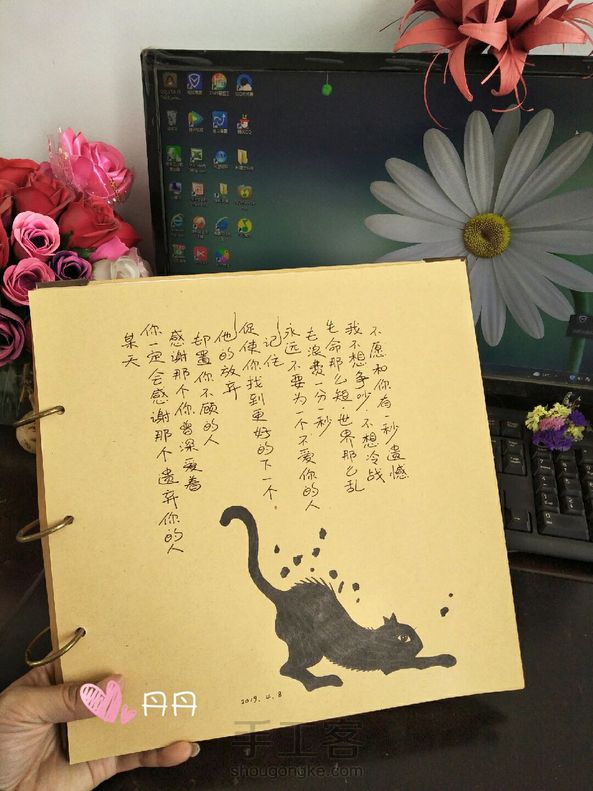 某天
你一定会感谢那个遗弃你的人
感谢那个你曾深爱着
却置你不顾的人
他的放弃
促使你找到更好的下一个。
记住
永远不要为一个不爱你的人
去浪费一分一秒
生命那么短.世界那么乱
我不想争吵.不想冷战
不愿和你有一秒遗憾
2019.4.8
丹丹
手工客
shougongke.com